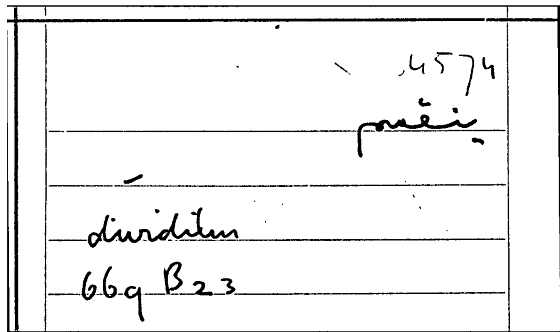 4574
dividitur
669 B23